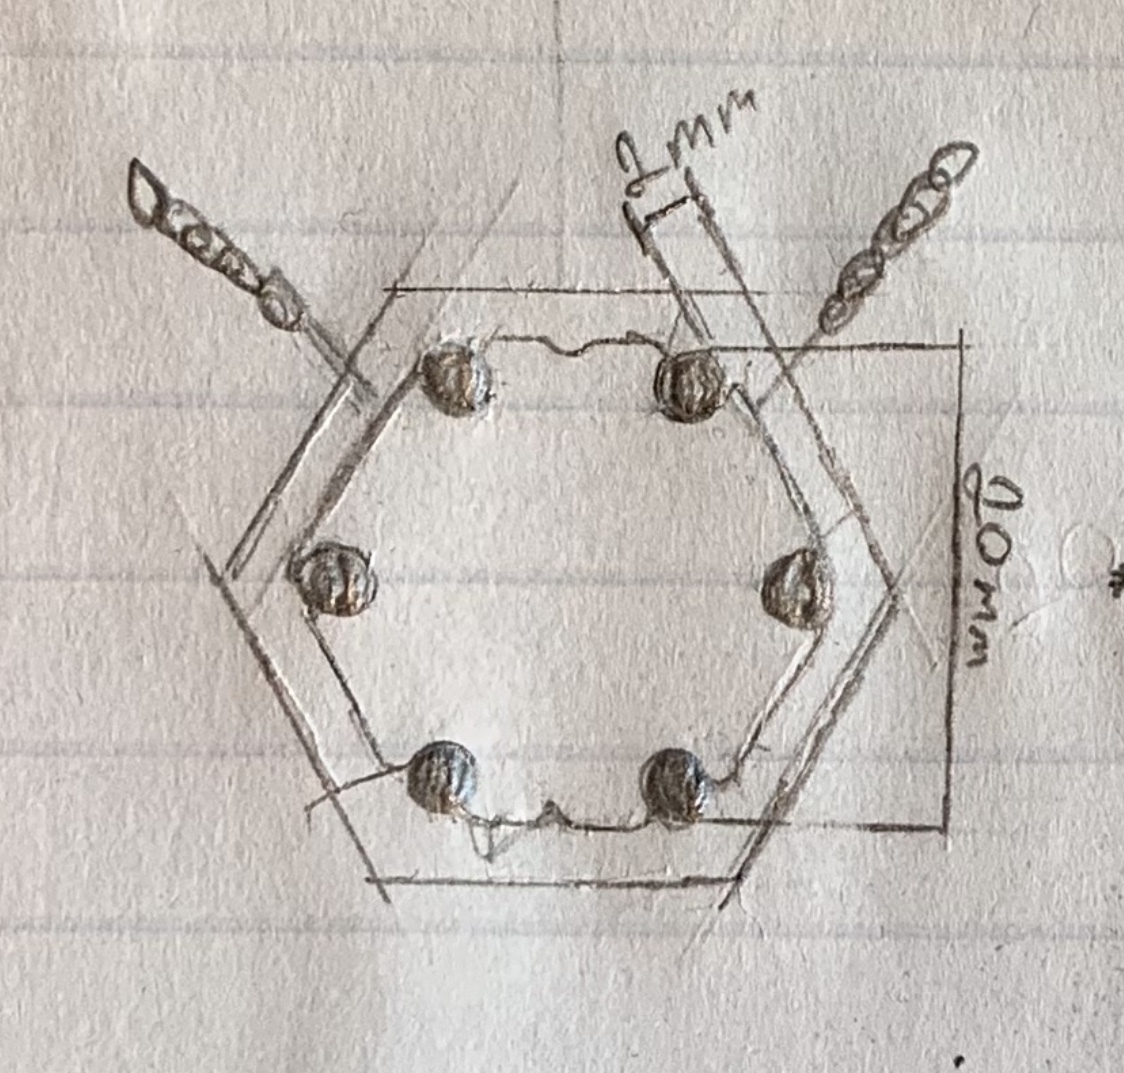 2mm
20mm